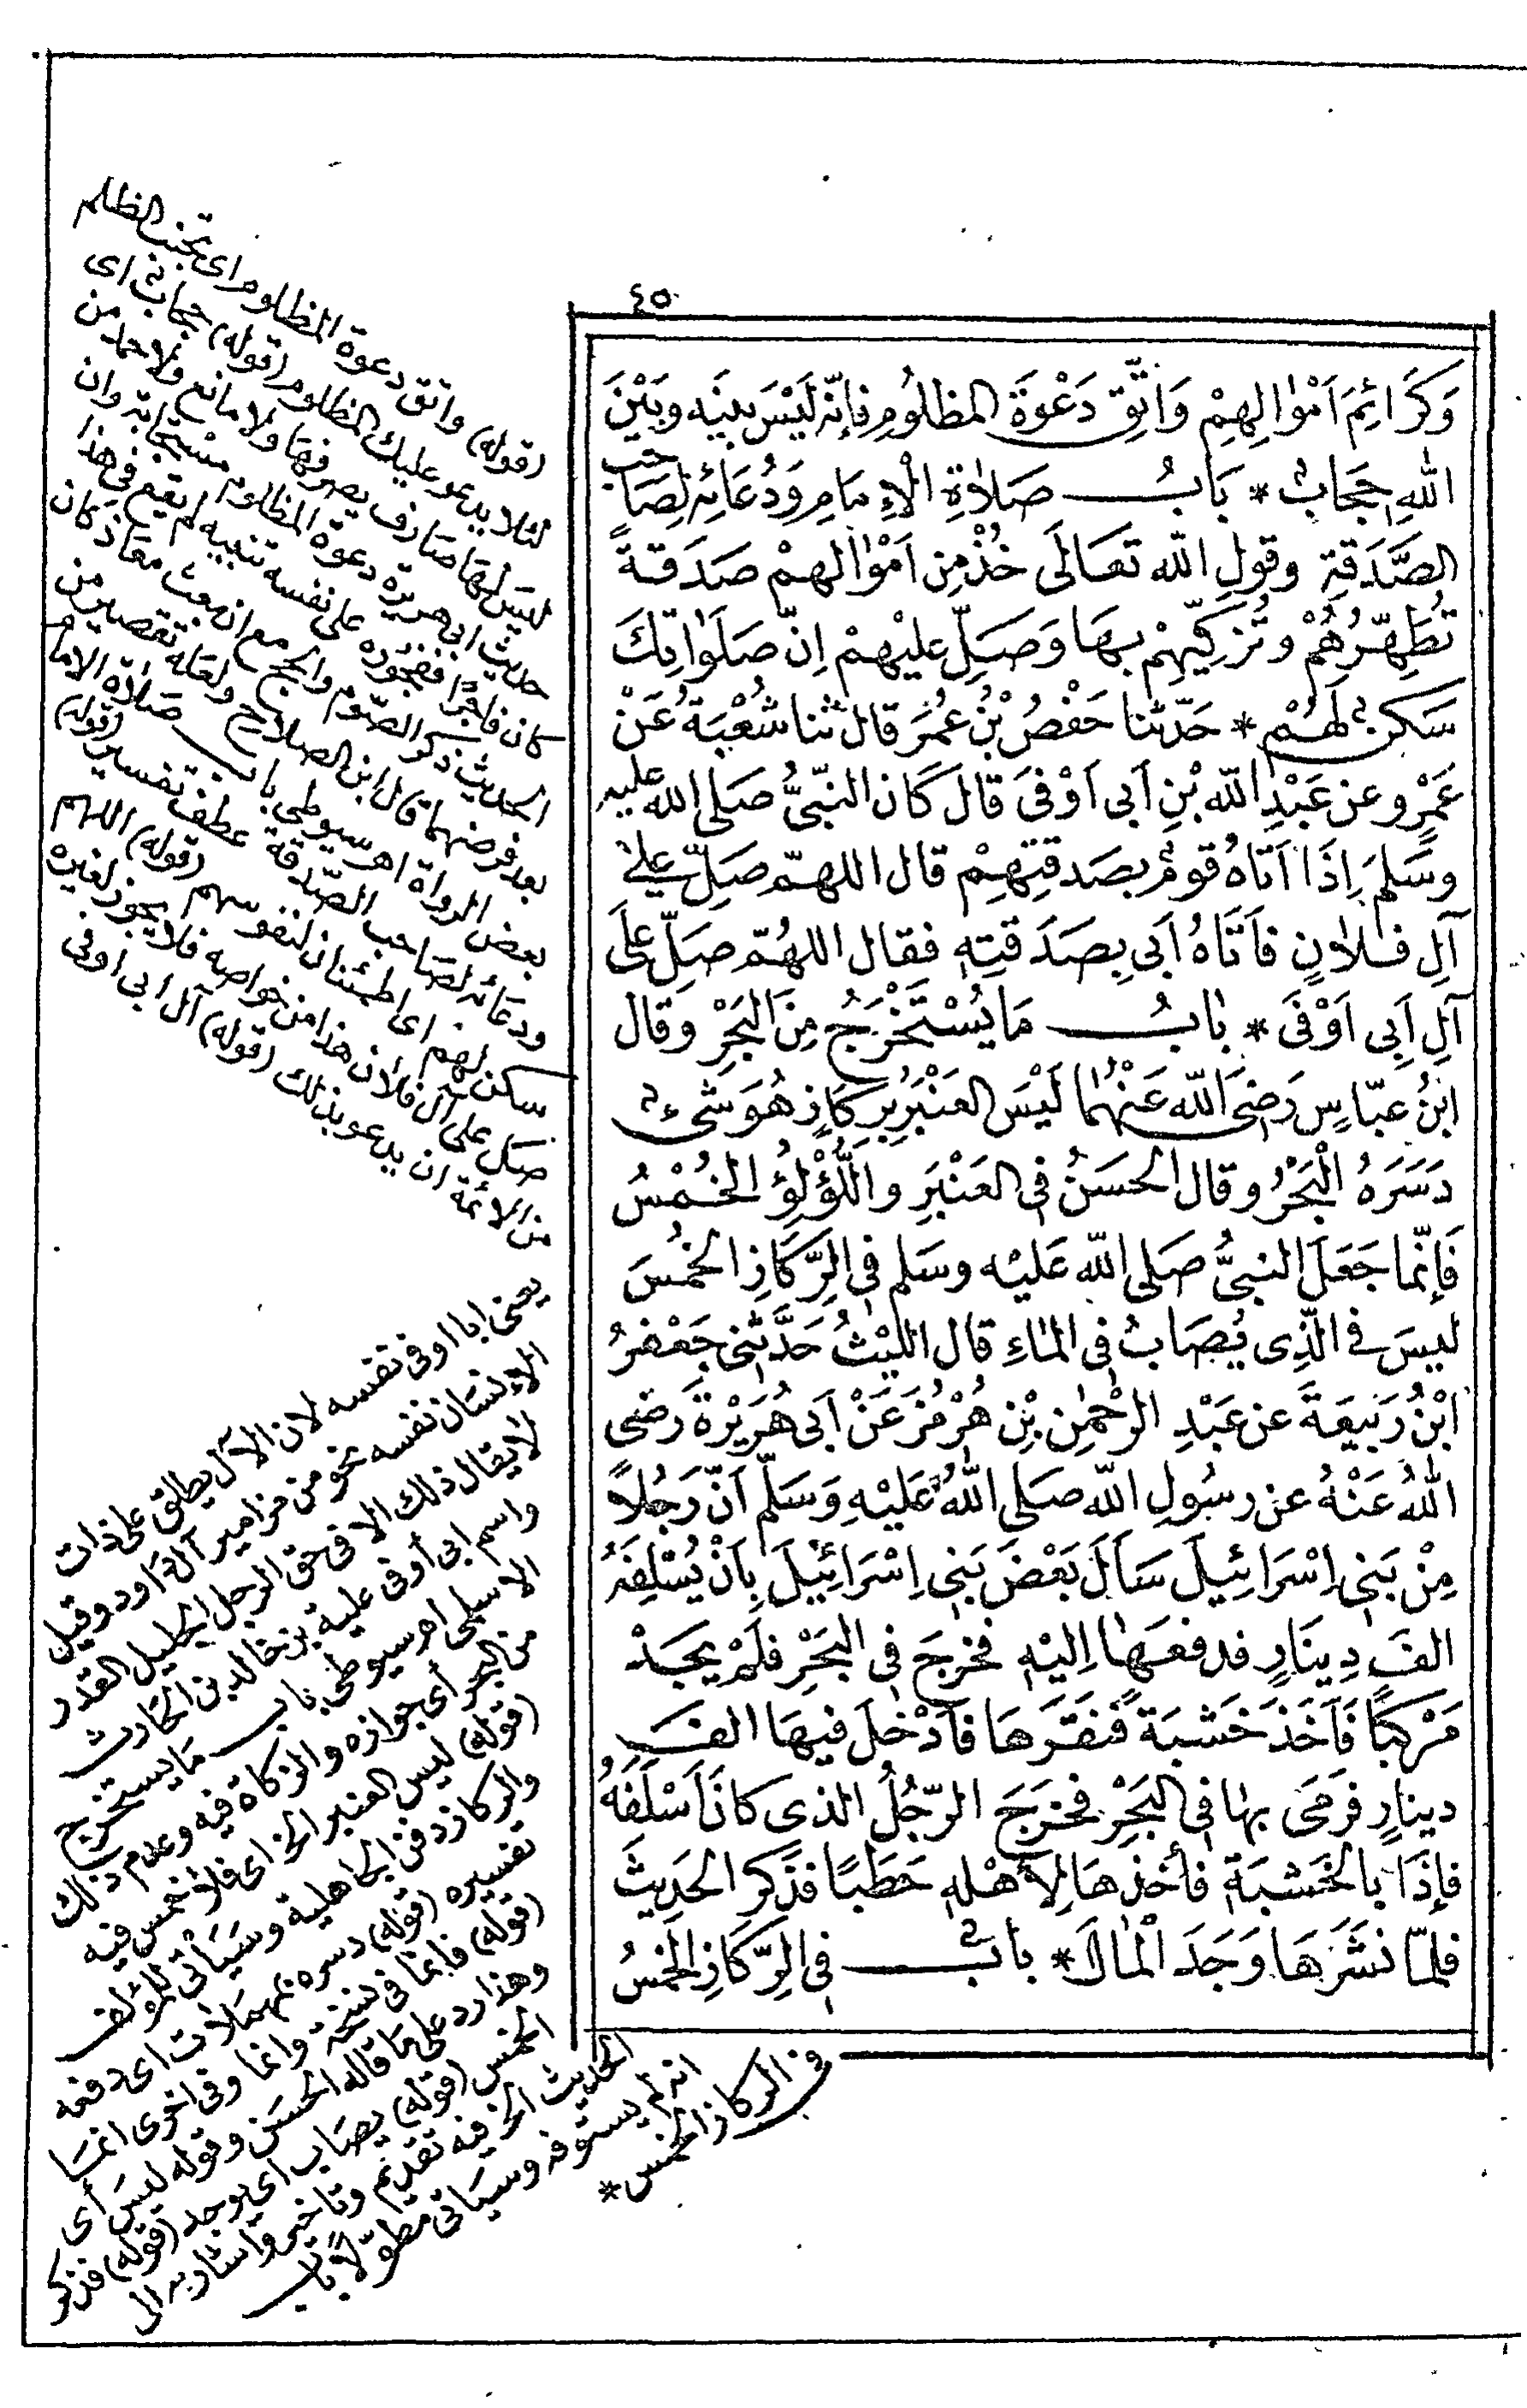 ٤٥
وَكَرَائِمَ اَمْوَالِهِمْ وَاتَّقِ دَعْوَةَ المظلُومِ فإنّه لَيْسَ بينَه وبَيْنَ
اللهِ حِجَابٌ * بَابُ صَلاَةِ الْاِمَامِ وَدُعَائِهِ لِصَاحب
الصَّدَقَةِ وقولِ اللّه تعَالَى خُذْ مِن اَمْوَالهمْ صَدَقةً
تُطَهِّرُهُمْ وتُزَكِّيهِمْ بهَا وَصَلِّ عليْهمْ اِنّ صَلَوَاتِكَ
سَكنٌ لَهُمْ * حَدّثنا حَفْصُ بْنُ عُمَرَ قال ثنا شُعْبَةُ عَنْ
عَمْرٍو عن عَبْدِ اللّه بْنِ اَبى اَوْفَى قالَ كَانَ النّبيُّ صَلى الله عليه
وسَلمَ اِذَا اَتَاهُ قومٌ بصَدقتِهِمْ قال اللهمّ صَلِّ على
آلِ فلاَنٍ فاَتَاهُ اَبى بِصَدَقتِهِ فقال اللهُمّ صَلِّ عَلَى
آلِ اَبِى اَوْفَى * بَابُ مَا يُسْتَخْرَجُ مِنَ البَحْرِ وقال
ابنُ عبّاسٍ رَضىَ اللّه عَنْهُما لَيْسَ العَنْبَرُ بِرِكَازٍ هُوَ شىءٌ
دَسَرَهُ الْبَحْرُ وقال الحسَنُ فى العَنْبَرِ واللُّؤْلُؤِ الخُمْسُ
فَإِنّما جَعَلَ النبىُّ صَلى اللّه عَليْه وسَلم فى الرِّكَازِ الخُمْسَ
ليسَ فى الَّذِى يُصَابُ فى المَاءِ قال الليْثُ حَدَّثنى جَعْفرُ
ابْنُ رَبِيعَةَ عن عَبْدِ الرحْمٰنِ بْنِ هُرْمُزَ عَنْ اَبى هُرَيْرَةَ رَضى
اللهُ عَنْهُ عن رسُولِ اللّه صَلى اللهُ عَليْهِ وَسَلّم اَنّ رَجُلاً
مِنْ بَنى اِسْرَائِيلَ سَاَلَ بَعْضَ بَنِى اِسْرَائِيْلَ بِاَنْ يُسْلِفَهُ
الفَ دِينَارٍ فدفعَهَا اِليْهِ فخرجَ فى البَحْرِ فلَمْ يَجِدْ
مَرْكبًا فَاَخَذَ خَشبَةً فنقَرَهَا فاَدْخلَ فيهَا الفَ
دينارٍ فرَمَى بهَا فى البَحْرِ فخرَجَ الرّجُلُ الذى كانَ اَسْلَفَهُ
فإِذَا بالخَشبَةِ فأخذهَا لِأَهْلهِ حَطَبًا فذكر الحَدِيثَ
فلمّا نشَرَهَا وَجَدَ الْمَالَ * بابٌ فى الرِّكَازِ الخُمسُ
(قوله) واتق دعوة المظلوم اى تجنب الظلم
لئلا يدعو عليك المظلوم (قوله) حجاب اى
ليس لها صارف يصرفها ولا مانع ولاحمد من
حديث ابى هريرة دعوة المظلوم مستجابة وان
كان فاجرا ففجوره على نفسه تنبيه لم يقع فى هذا
الحديث ذكر الصوم والحج مع ان بعث معاذ كان
بعد فرضهما قال ابن الصلاح ولعله تقصير من
بعض الرواة اهـ سيوطى باب صلاة الامام
ودعائه لصاحب الصدقة عطف تفسير (قوله)
سكن لهم اى اطمئنان لنفوسهم (قوله) اللهم
صل على آل فلان هذا من خواصه فلا يجوز لغيره
من الائمة ان يدعو بذلك (قوله) آل ابى اوفى
يعنى ابا اوفى نفسه لان الآل يطلق على ذات
الانسان نفسه نحو من مزامير آل داود وقيل
لا يقال ذلك الا فى حق الرجل الجليل القدر
واسم ابى أوفى علية بن خالد بن الحارث
الاسلمى اهـ سيوطى باب ما يستخرج
من البحر أى جوازه والزكاة فيه وعدم ذلك
(قوله) ليس العنبر الخ اى فلا خمس فيه
والركاز دفن الجاهلية وسيأتى للمؤلف
تفسيره (قوله) دسره بمهملات اى دفعه
(قوله) فانما فى نسخة وانما وفى اخرى انما
وهذا رد على ما قاله الحسن وقوله ليس أى
الخمس (قوله) يصاب اى يوجد (قوله) فذكر
الحديث الخ فيه تقديم وتاخير واشار به الى
انه لم يستوفه وسيأتى مطوّلا باب
فى الركاز الخمس *